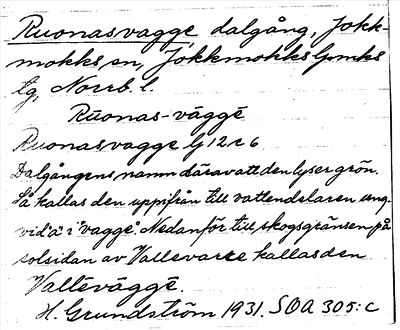 Ruonasvagge dalgång, Jokk-
mokks sn, Jokkmokks lpmks
tg, Norrb. l.
Rūonas-vāggē
Ruonasvagge Gj 12 r 6
Dalgångens namn därav att den lyser grön.
Så kallas den uppifrån till vattendelaren ung.
vid "a" i "vagge". Nedanför till skogsgränsen på
solsidan av Vallevarre kallas den
Vallēvāggē.
H. Grundström 1931. SOA 305:c